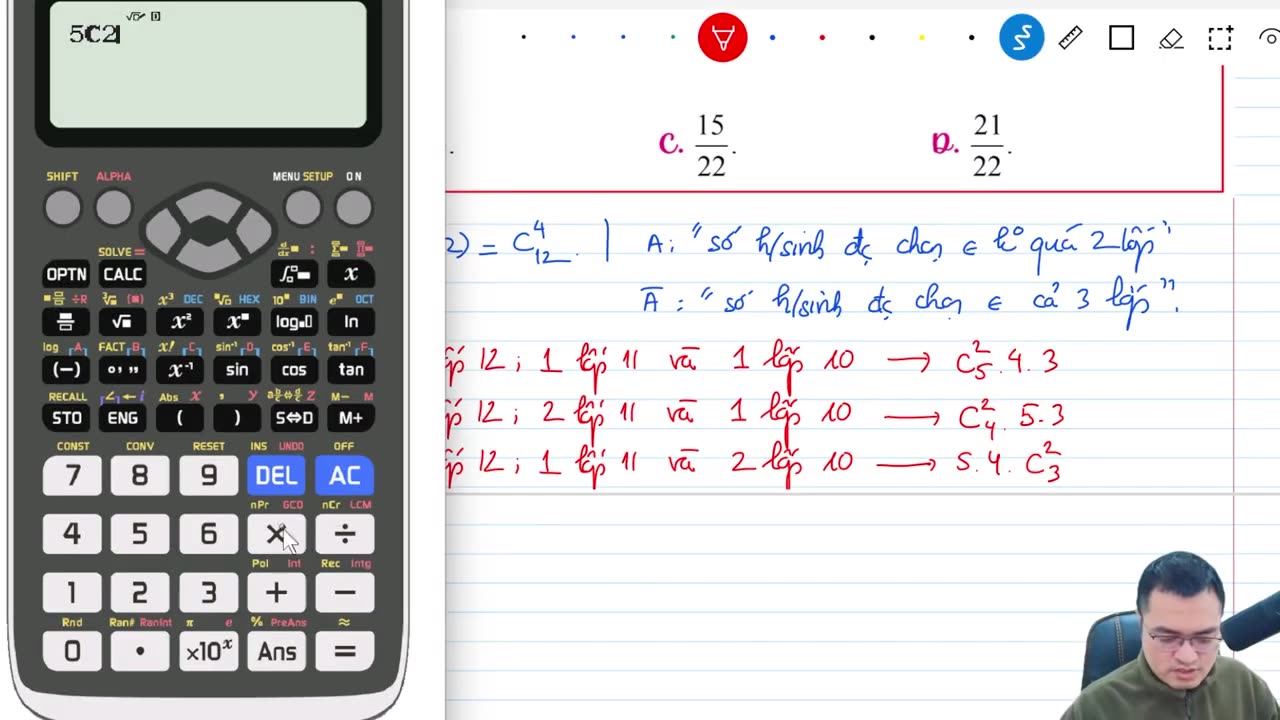 5C2
SHIFT ALPHA MENU SETUP ON
SOLVE =
OPTN CALC x
÷R x³ DEC HEX 10 BIN e OCT
x² log ln
log A FACT B x! C sin⁻¹ D cos⁻¹ E tan⁻¹ F
(−) x⁻¹ sin cos tan
RECALL ∠ ← i Abs x , y Z M− M
STO ENG ( ) S⇔D M+
CONST CONV RESET INS UNDO OFF
7 8 9 DEL AC
nPr GCD nCr LCM
4 5 6 × ÷
Pol Int Rec Intg
1 2 3 + −
Rnd Ran# RanInt π e % PreAns ≈
0 • ×10ˣ Ans =
C. 15/22. D. 21/22.
2) = C⁴₁₂ | A: "số h/sinh đc chọn ∈ kº quá 2 lớp"
Ā: "số h/sinh đc chọn ∈ cả 3 lớp".
12; 1 lớp 11 và 1 lớp 10 → C²₅.4.3
12; 2 lớp 11 và 1 lớp 10 → C²₄.5.3
12; 1 lớp 11 và 2 lớp 10 → 5.4.C²₃